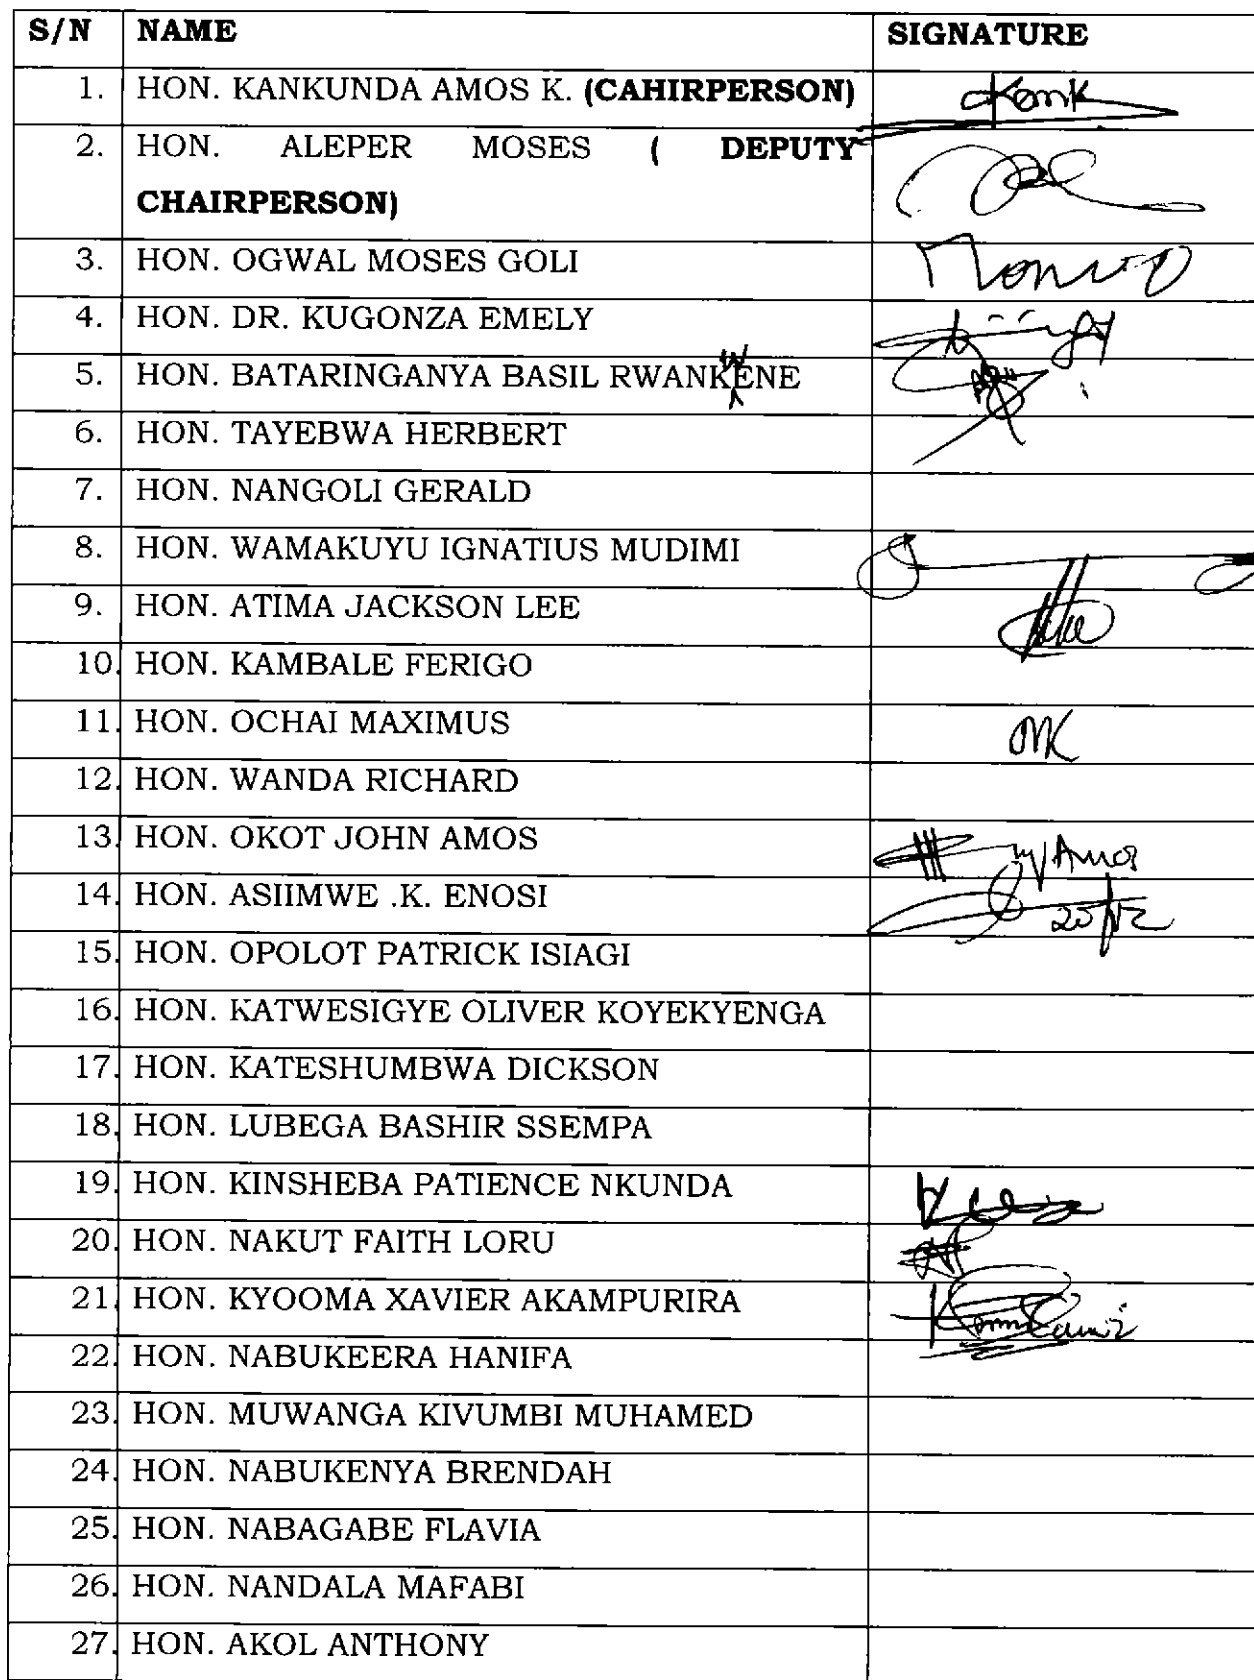 S/N NAME SIGNATURE
1. HON. KANKUNDA AMOS K. (CAHIRPERSON)
2. HON. ALEPER MOSES ( DEPUTY
CHAIRPERSON)
3. HON. OGWAL MOSES GOLI
4. HON. DR. KUGONZA EMELY
5. HON. BATARINGANYA BASIL RWANKWENE
6. HON. TAYEBWA HERBERT
7. HON. NANGOLI GERALD
8. HON. WAMAKUYU IGNATIUS MUDIMI
9. HON. ATIMA JACKSON LEE
10. HON. KAMBALE FERIGO
11. HON. OCHAI MAXIMUS
12. HON. WANDA RICHARD
13. HON. OKOT JOHN AMOS Amos
14. HON. ASIIMWE .K. ENOSI
15. HON. OPOLOT PATRICK ISIAGI
16. HON. KATWESIGYE OLIVER KOYEKYENGA
17. HON. KATESHUMBWA DICKSON
18. HON. LUBEGA BASHIR SSEMPA
19. HON. KINSHEBA PATIENCE NKUNDA
20. HON. NAKUT FAITH LORU
21. HON. KYOOMA XAVIER AKAMPURIRA
22. HON. NABUKEERA HANIFA
23. HON. MUWANGA KIVUMBI MUHAMED
24. HON. NABUKENYA BRENDAH
25. HON. NABAGABE FLAVIA
26. HON. NANDALA MAFABI
27. HON. AKOL ANTHONY